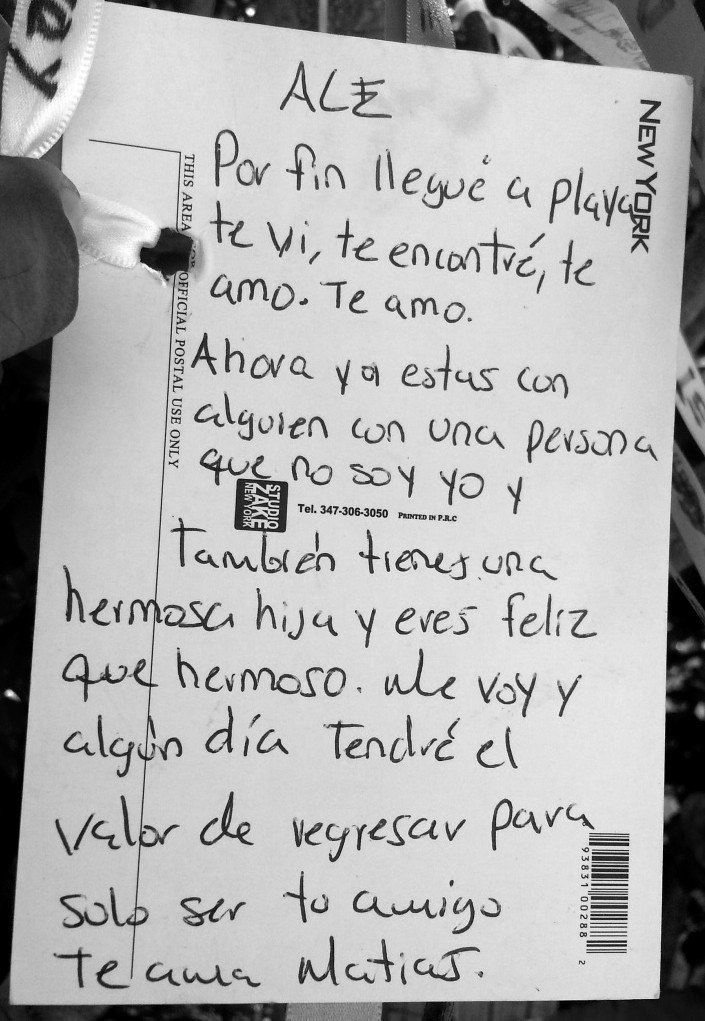 ALE
NEW YORK
Por fin llegué a playa
te vi, te encontré, te
amo. Te amo.
Ahora ya estas con
alguien con una persona
que no soy yo y
STUDIO
ZAKE
NEW YORK
Tel. 347-306-3050 PRINTED IN P.R.C
También tienes una
hermosa hija y eres feliz
que hermoso. Me voy y
algún día Tendré el
valor de regresar para
solo ser tu amigo
Te ama Matias.
THIS AREA FOR OFFICIAL POSTAL USE ONLY
93831 00288 2